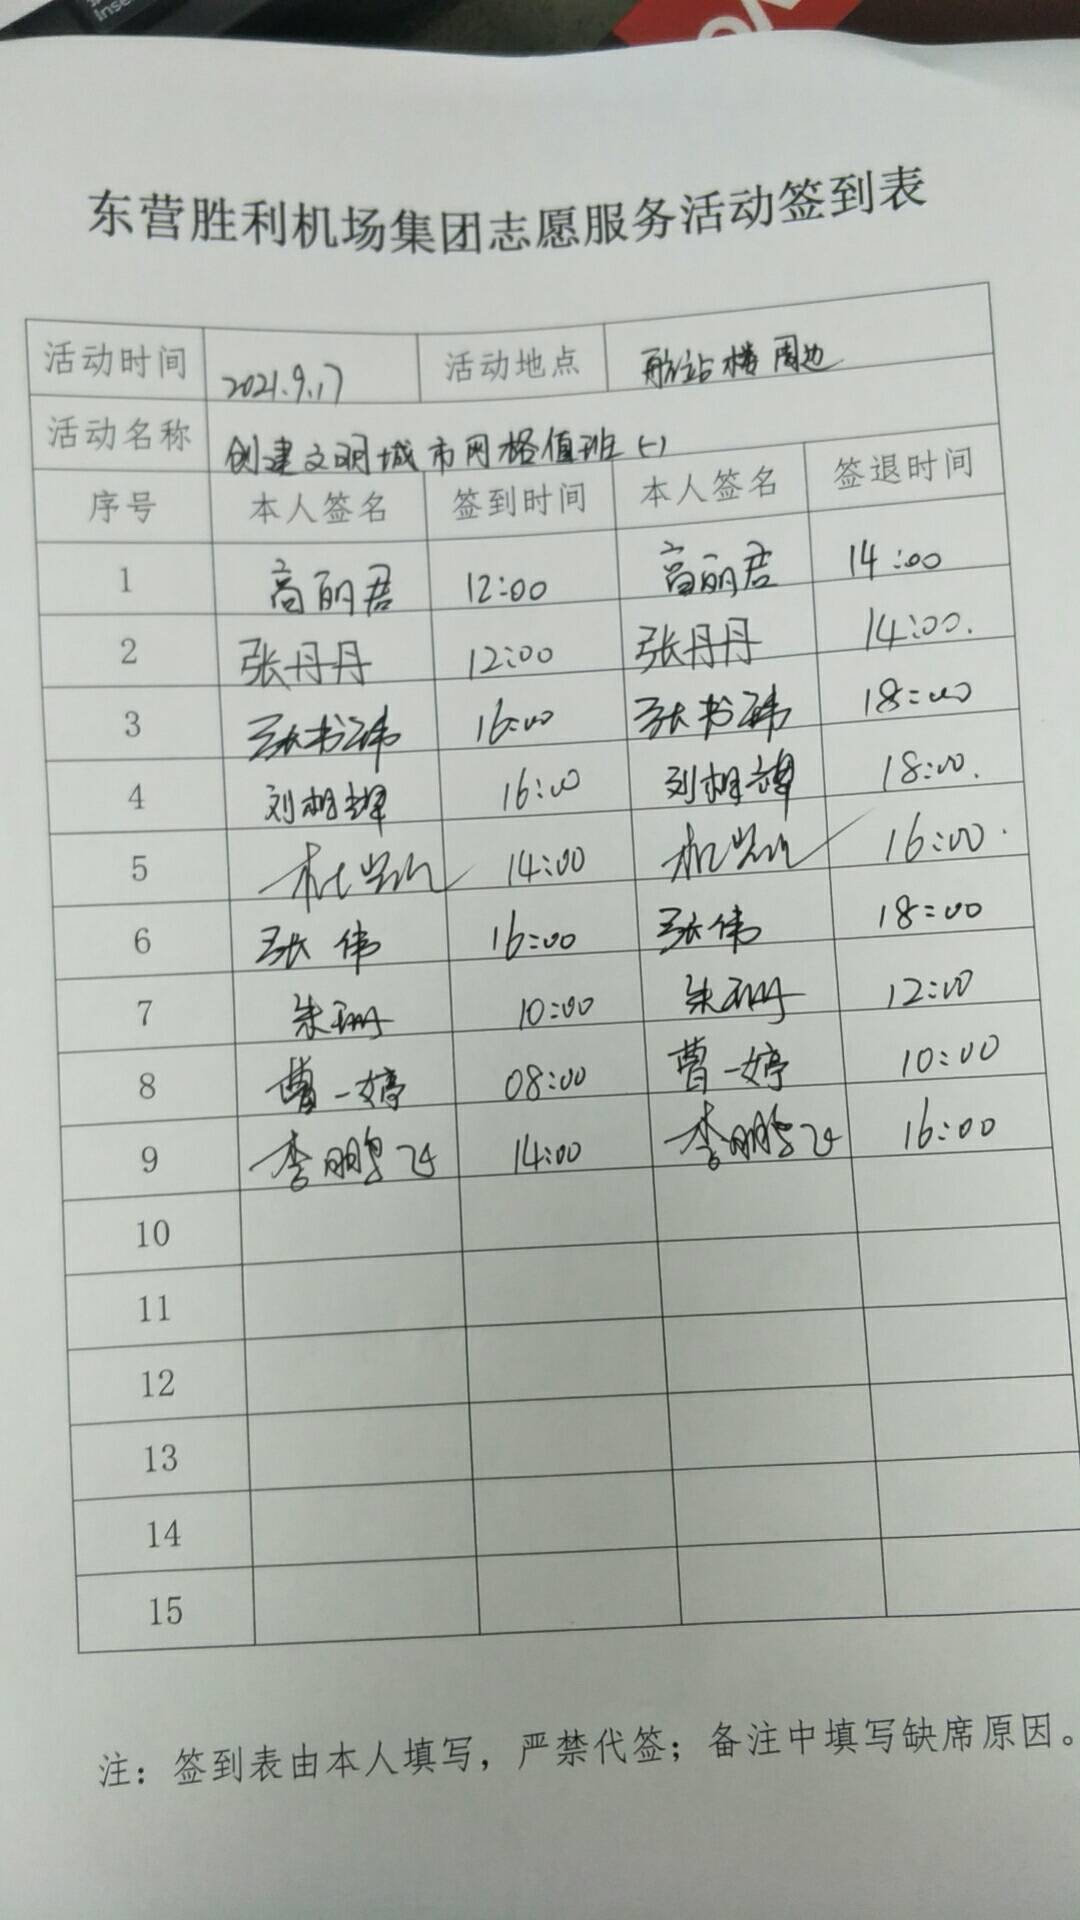 Inse
东营胜利机场集团志愿服务活动签到表
活动时间 2021.9.17 活动地点 航站楼周边
活动名称 创建文明城市网格值班(一)
序号 本人签名 签到时间 本人签名 签退时间
1 高丽君 12:00 高丽君 14:00
2 张丹丹 12:00 张丹丹 14:00.
3 张书玮 16:00 张书玮 18:00
4 刘相 16:00 刘相 18:00.
5 杜 14:00 杜 16:00.
6 张伟 16:00 张伟 18:00
7 朱珊 10:00 朱珊 12:00
8 曹一婷 08:00 曹一婷 10:00
9 李鹏飞 14:00 李鹏飞 16:00
10
11
12
13
14
15
注：签到表由本人填写，严禁代签；备注中填写缺席原因。